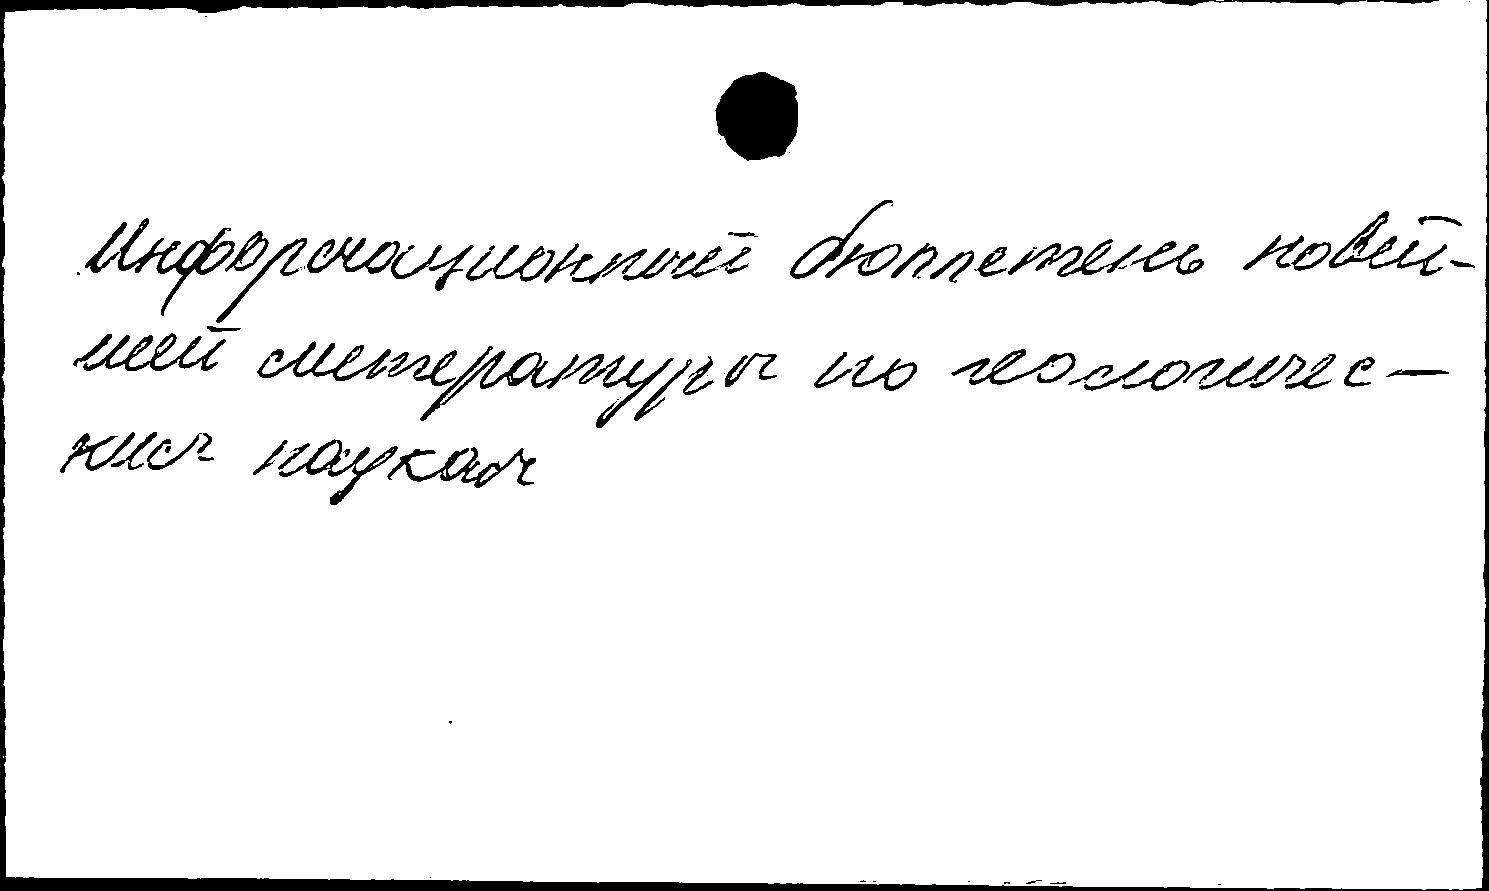 Информационный бюллетень новей-
шей литературы по геологичес-
ким наукам